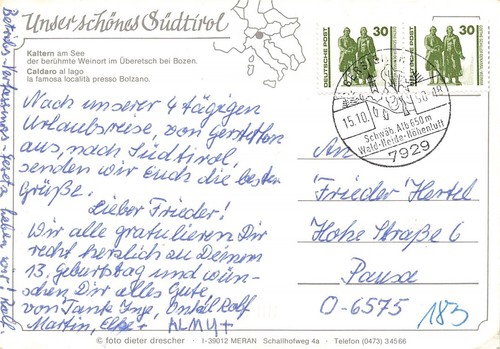 Unser schönes Südtirol
Kaltern am See
der berühmte Weinort im Überetsch bei Bozen.
Caldaro al lago
la famosa località presso Bolzano.
Nach unserer 4 tägigen
Urlaubsreise, von
aus, nach Südtirol,
senden wir Euch die besten
Grüße.
Lieber Frieder!
Wir alle gratulieren Dir
recht herzlich zu Deinem
13. Geburtstag und wün-
schen Dir alles Gute,
von Tante Inge, Onkel Rolf
Martin, Elke + ALMUT
DEUTSCHE POST 30
DEUTSCHE POST 30
15.10.90
Schwäb. Alb 650 m
Wald-Heide-Höhenluft
7929
An
Frieder Hertel
Hohe Straße 6
Pausa
O-6575
183
© foto dieter drescher · I-39012 MERAN Schallhofweg 4a · Telefon (0473) 34566
haben wir! Rolf.